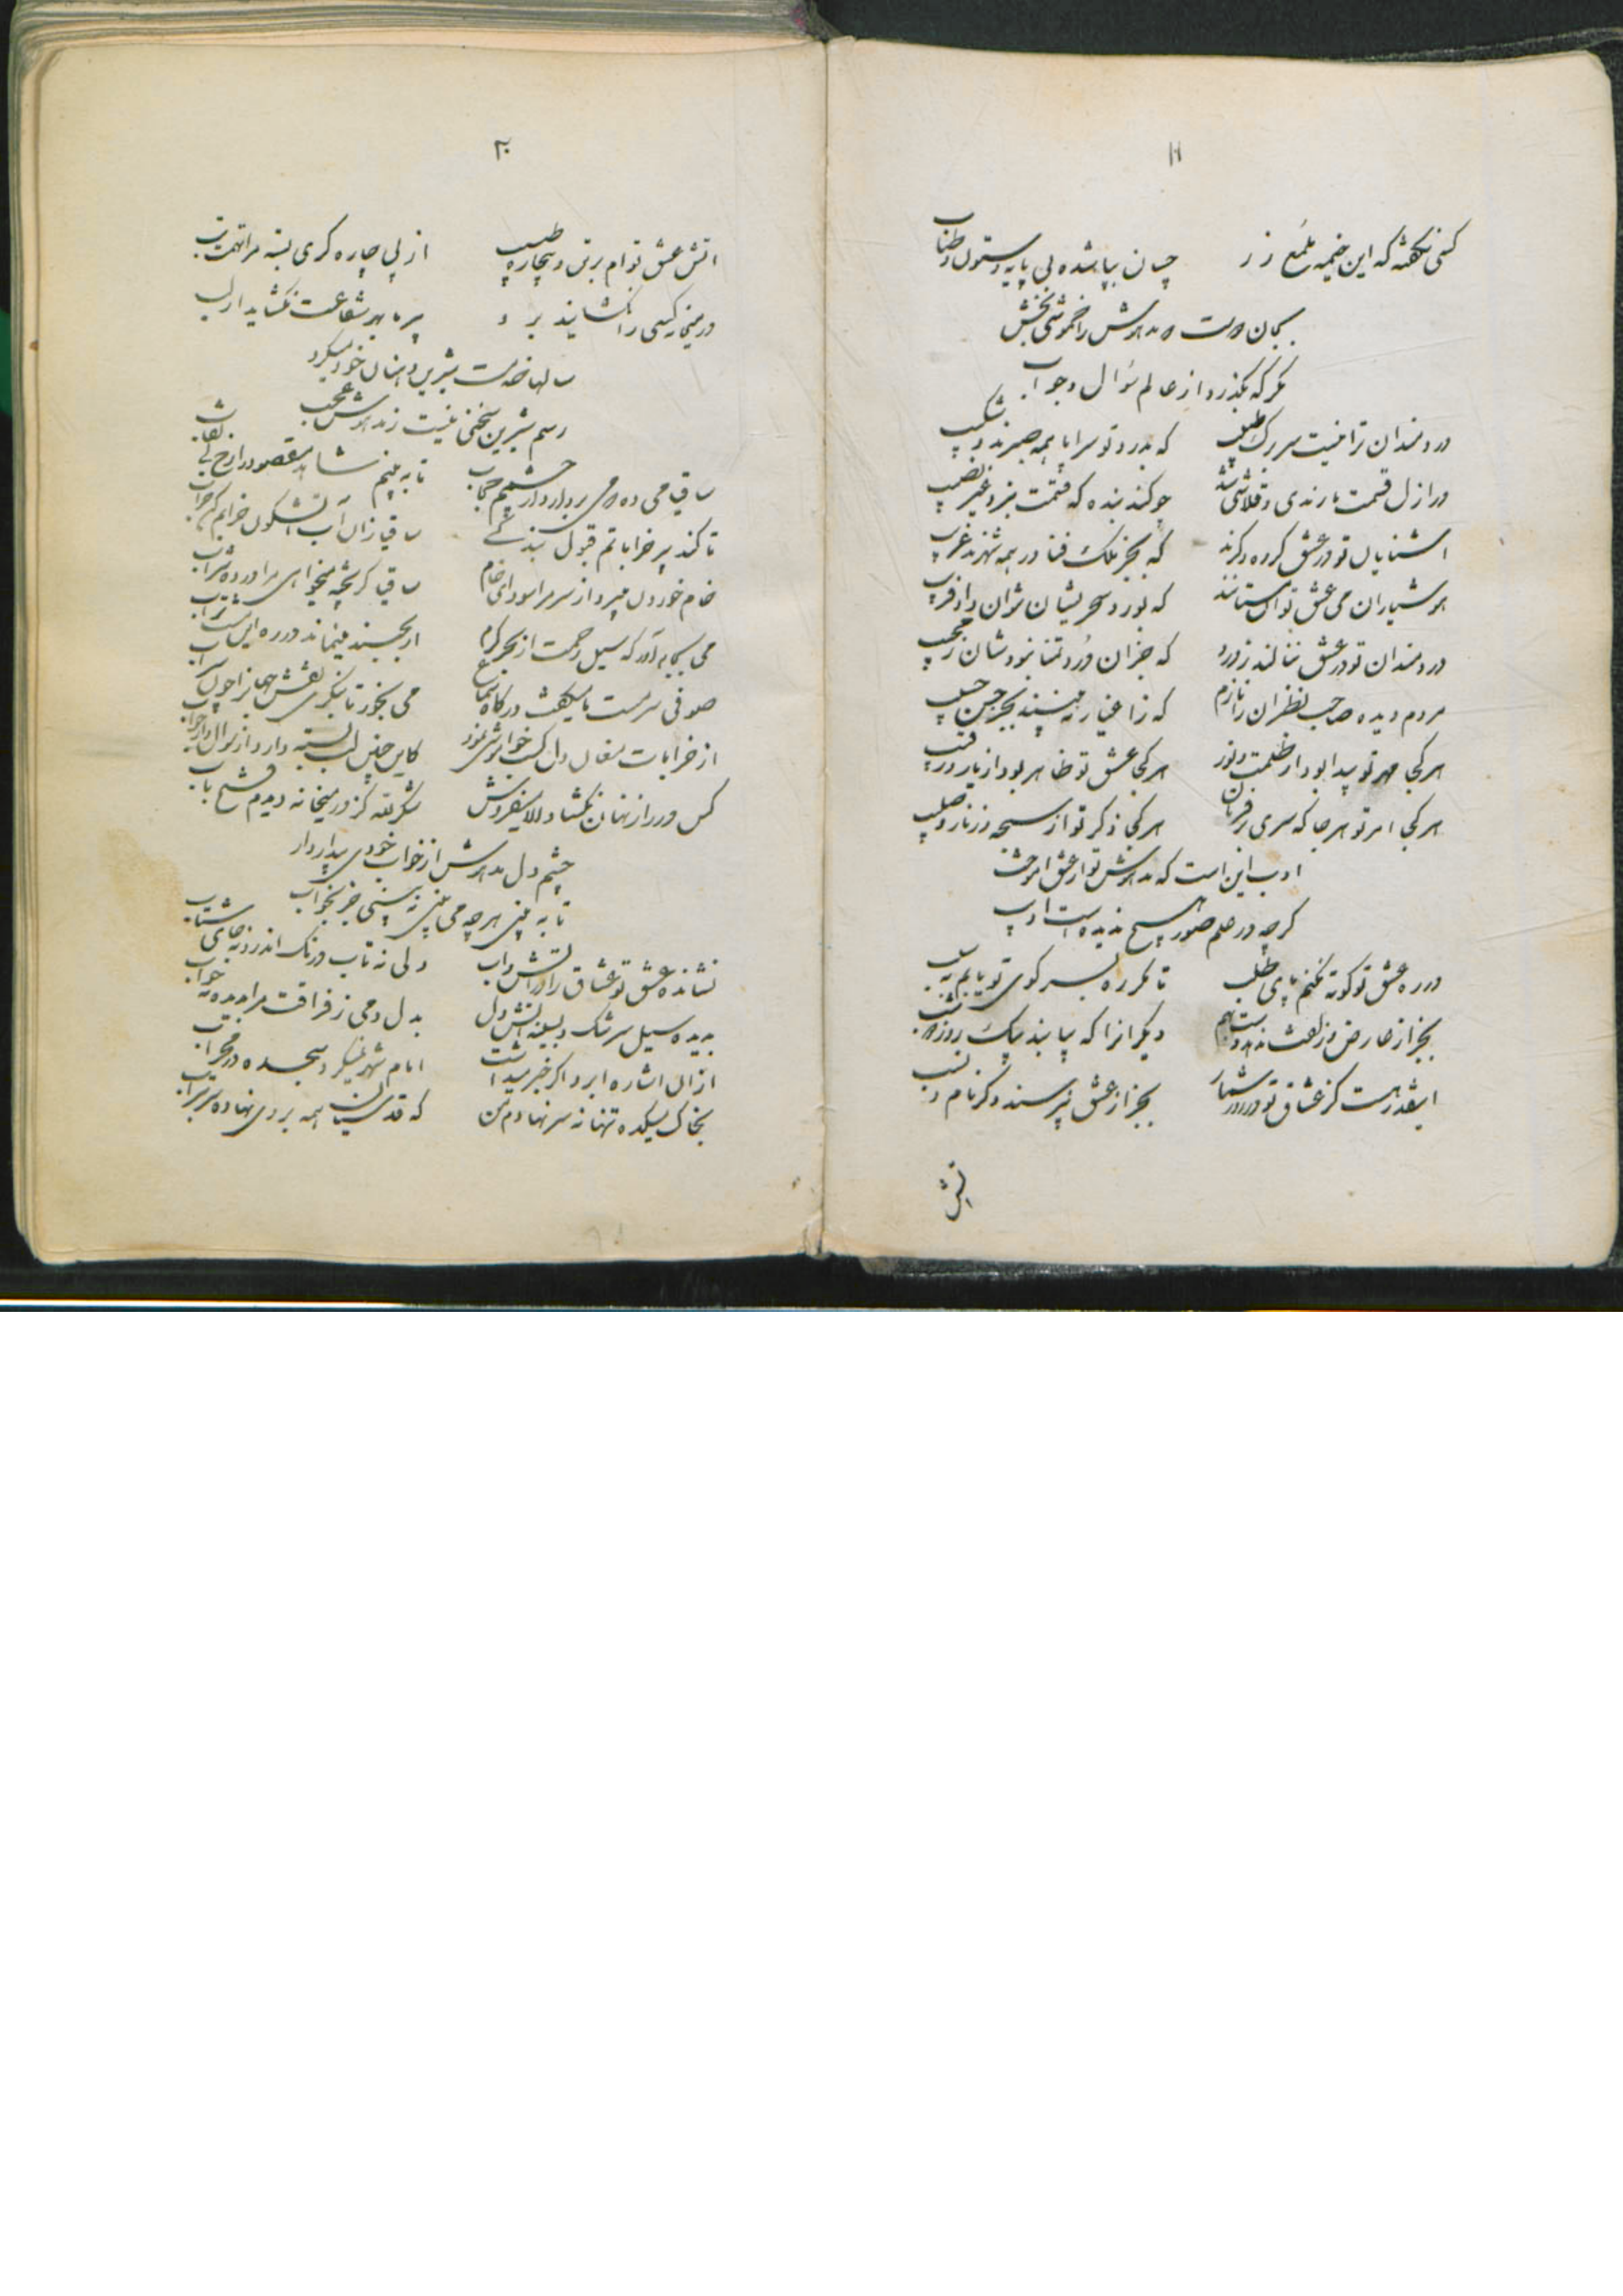 کسی نگفته که این خیمه ملمع زر
چسان بپا شده بی پایه و ستون و طناب
بجان دوست مدهوش را خموشی بخش
مگر که بگذرد از عالم سؤال و جواب
دردمندان ترا نیست سر و برگ طبیب
که بدرد تو سراپا همه صبرند و شکیب
در ازل قسمت ما رندی و قلاشی شد
چو کند بنده که قسمت نبرد غیر نصیب
آشنایان تو در عشق کروه دگرند
که بجز ملک فنا در همه شهرند غریب
هوشیاران می عشق تو آن مستانند
که بورد سحریشان نتوان داد فریب
دردمندان تو در عشق ننالند ز درد
که جز آن درد تمنا نبودشان ز مجیب
مردم دیده صاحب نظران را نازم
که ز اغیار نه بینند بجز حسن حبیب
هر کجا مهر تو پیدا بود از ظلمت و نور
هر کجا عشق تو ظاهر بود از یار و رقیب
هر کجا امر تو هر جا که سری در فرمان
هر کجا ذکر تو از سبحه و زنار و صلیب
ادب این است که مدهوش تو از عشق آموخت
گرچه در علم صور هیچ ندیده است ادیب
در ره عشق تو کوته نکنم پای طلب
تا مگر ره بسر کوی تو یابم
بجز از عارض و زلفت ندهد دست بهم
دیگرانرا که بیابند بیک روز و شب
اینقدر هست کز عشاق تو در روز شمار
بجز از عشق نپرسند دگر نام و نسب
آتش
۲۰
آتش عشق توام بر تن و بیچاره طبیب
از پی چاره گری بسته مرا تهمت تب
در میخانه کسی را نگشایند بر و
پیر ما بهر شفاعت نگشاید ار لب
سالها خدمت شیرین دهنان خود میکرد
رسم شیرین سخنی نیست ز مدهوش عجب
ساقیا می ده و می بردار از چشمم حجاب
تا به بینم شاهد مقصود را رخ بی نقاب
تا کند پیر خراباتم قبول بندگی
ساقیا زان آب آتشگون خرابم کن خراب
خام خود دل میبرد از سر مرا سودای خام
ساقیا گر پخته میخواهی مرا در ده شراب
می بجام آور که سیل رحمت از بحر کرم
صوفی سرمست ما میگفت در گاه سماع
می بخور تا بنگری نقش جهانرا چون سراب
از خرابات مغان دل کسب خواموشی نمود
کاین چنین لب بسته دارد از سوال و از جواب
کس در راز نهان نگشاد الا میفروش
شکر لله کز در میخانه دیدم فتح باب
چشم دل مدهوش از خواب خودی بیدار دار
تا به بینی هر چه می بینی نه بینی جز بخواب
نشانده عشق تو عشاق را در آتش و آب
ولی نه تاب درنگ اندرو نه جای شتاب
بدیده سیل سرشک و بسینه آتش دل
بدل دمی ز فراقت مرا بدیده نه خواب
از ان اشاره ابرو اگر خبر میداشت
امام شهر نمیکرد سجده در محراب
بخاک میکده تنها نه سر نهادم من
که قدسیان همه بر وی نهاده سر